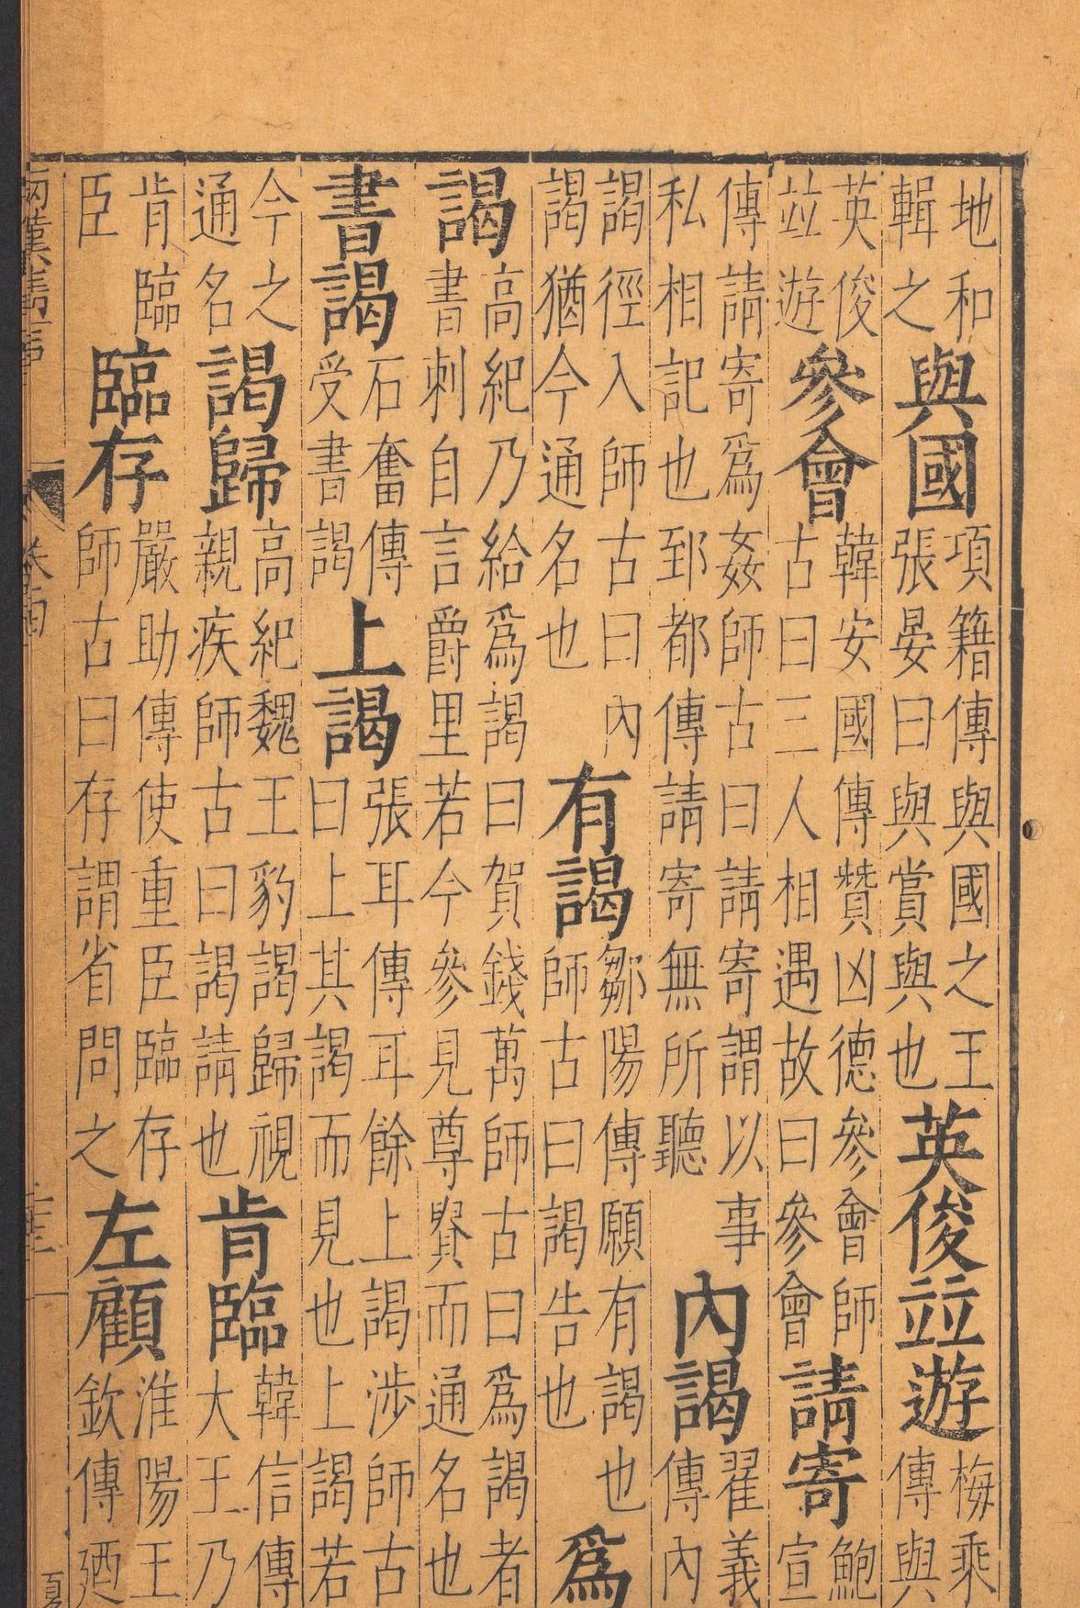 地和輯之與國項籍傳與國之王張晏曰與賞與也英俊竝遊梅乘傳與
英俊竝遊參會韓安國傳贊凶德參會師古曰三人相遇故曰參會請寄鮑宣
傳請寄爲姦師古曰請寄謂以事私相記也郅都傳請寄無所聽內謁翟義傳內
謁徑入師古曰內謁猶今通名也有謁鄒陽傳願有謁也師古曰謁告也爲
謁高紀乃給爲謁曰賀錢萬師古曰爲謁者書刺自言爵里若今參見尊貴而通名也
書謁石奮傳受書謁上謁張耳傳耳餘上謁涉師古曰上其謁而見也上謁若
今之通名謁歸高紀魏王豹謁歸視親疾師古曰謁請也肯臨韓信傳大王乃
肯臨臣臨存嚴助傳使重臣臨存師古曰存謂省問之左顧淮陽王欽傳廼